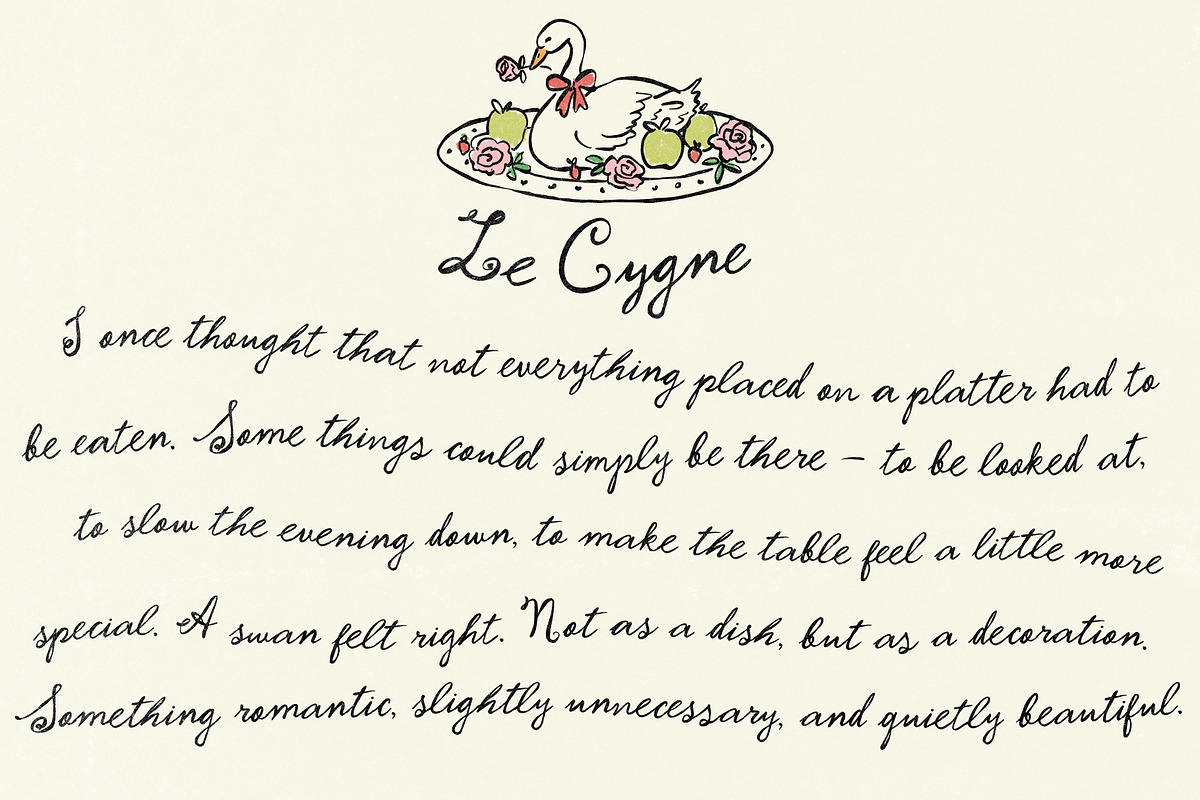 Le Cygne
I once thought that not everything placed on a platter had to
be eaten. Some things could simply be there – to be looked at,
to slow the evening down, to make the table feel a little more
special. A swan felt right. Not as a dish, but as a decoration.
Something romantic, slightly unnecessary, and quietly beautiful.